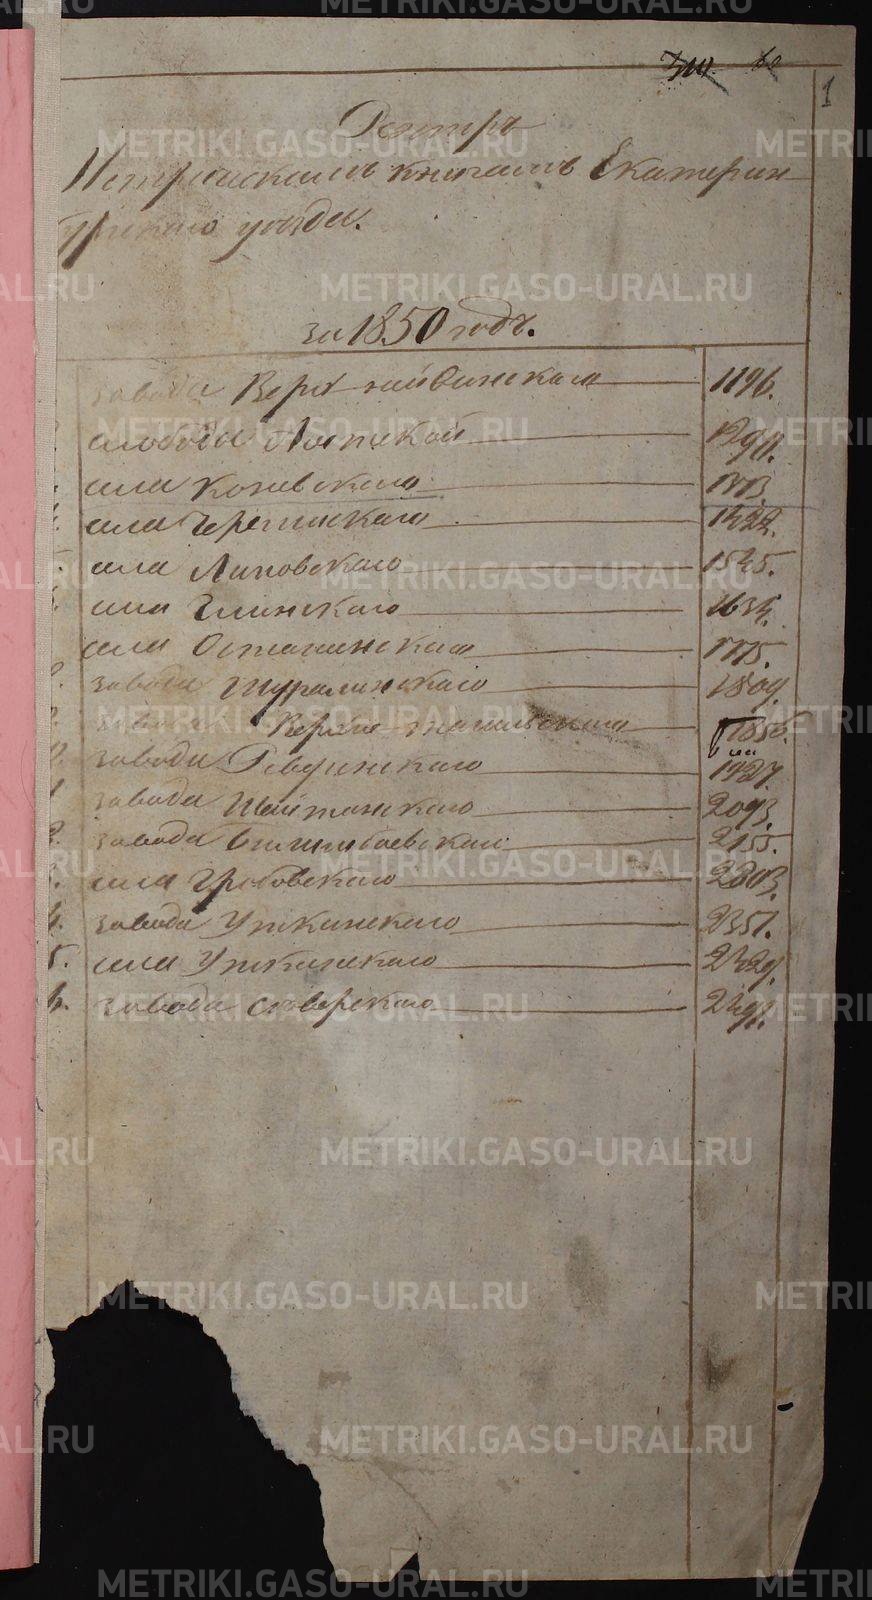 1
Реэстръ
Метрическимъ книгамъ Екатерин-
бургскаго уѣзда.
за 1850 годъ.
завода Верхнейвинскаго 1196.
слободы Аятской
села Коневскаго 1373.
села Черемисскаго 1422.
села Липовскаго 1545.
села Глинскаго 1634.
села Останинскаго 1775.
завода Шуралинскаго 1809.
завода Верхне-тагильскаго 1856.
завода Ревдинскаго 1927.
завода Шайтанскаго 2093.
2. завода Билимбаевскаго 2155.
3. села Гробовскаго 2303.
4. завода Уткинскаго 2357.
5. села Уткинскаго 2429.
6. завода Сѣверскаго 2491.
METRIKI.GASO-URAL.RU